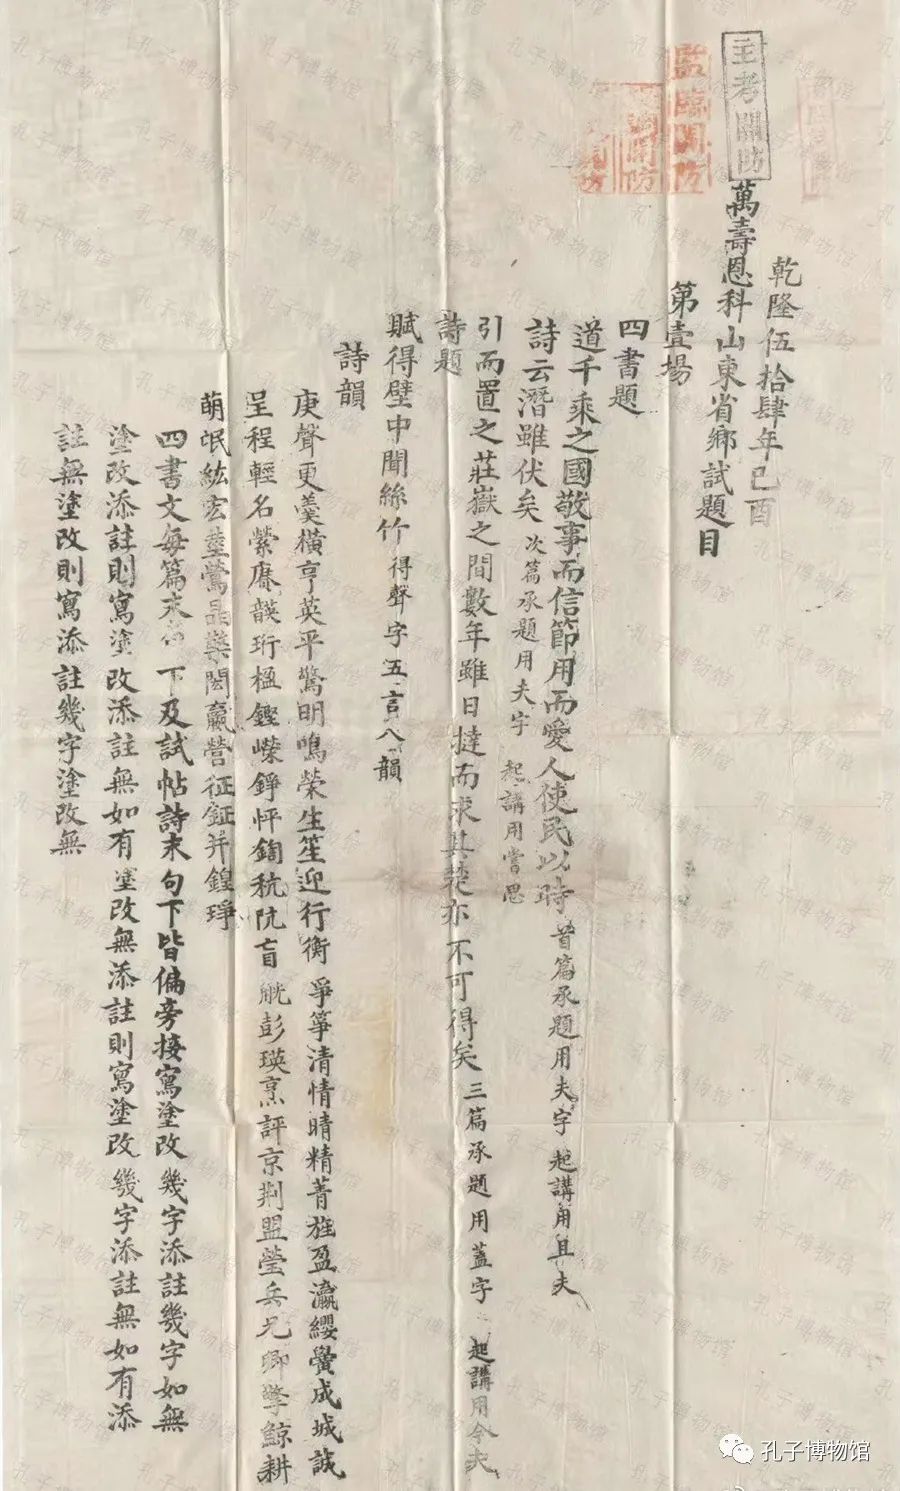 乾隆伍拾肆年己酉
主考關防
萬壽恩科山東省鄉試題目
監臨關防
第壹場
四書題
道千乘之國敬事而信節用而愛人使民以時 首篇承題用夫字 起講用且夫
詩云潛雖伏矣 次篇承題用夫字 起講用嘗思
引而置之莊嶽之間數年雖日撻而求其楚亦不可得矣 三篇承題用蓋字 起講用今夫
詩題
賦得壁中聞絲竹 得聲字五言八韻
詩韻
庚聲更羹橫亨英平驚明鳴榮生笙迎行衡爭箏清情晴精菁旌盈瀛纓黌成城誠
呈程輕名縈賡韺珩楹鏗嶸錚怦鍧秔阬盲觥彭瑛烹評京荆盟瑩兵兄卿擎鯨耕
萌氓紘宏莖鶯晶煢閎贏營征鉦并鍠琤
四書文每篇末 下及試帖詩末句下皆偏旁接寫塗改幾字添註幾字如無
塗改添註則寫塗改添註無如有塗改無添註則寫塗改幾字添註無如有添
註無塗改則寫添註幾字塗改無
孔子博物馆